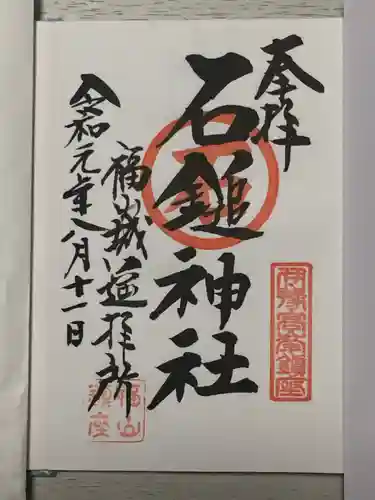 奉拝
石鎚神社
福山城遥拝所
令和元年八月十一日